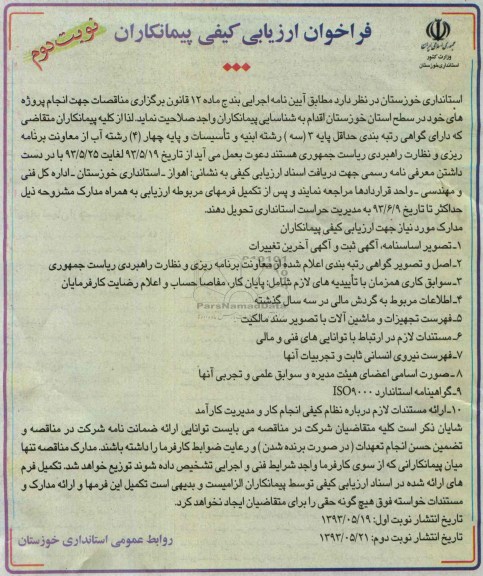 جمهوری اسلامی ایران
وزارت کشور
استانداری خوزستان
فراخوان ارزیابی کیفی پیمانکاران
نوبت دوم
استانداری خوزستان در نظر دارد مطابق آیین نامه اجرایی بند ج ماده ۱۲ قانون برگزاری مناقصات جهت انجام پروژه
های خود در سطح استان خوزستان اقدام به شناسایی پیمانکاران واجد صلاحیت نماید. لذا از کلیه پیمانکاران متقاضی
که دارای گواهی رتبه بندی حداقل پایه ۳ (سه) رشته ابنیه و تأسیسات و پایه چهار (۴) رشته آب از معاونت برنامه
ریزی و نظارت راهبردی ریاست جمهوری هستند دعوت بعمل می آید از تاریخ ۹۳/۵/۱۹ لغایت ۹۳/۵/۲۵ با در دست
داشتن معرفی نامه رسمی جهت دریافت اسناد ارزیابی کیفی به نشانی: اهواز ـ استانداری خوزستان ـ اداره کل فنی
و مهندسی ـ واحد قراردادها مراجعه نمایند و پس از تکمیل فرمهای مربوطه ارزیابی به همراه مدارک مشروحه ذیل
حداکثر تا تاریخ ۹۳/۶/۹ به مدیریت حراست استانداری تحویل دهند.
مدارک مورد نیاز جهت ارزیابی کیفی پیمانکاران
۱ـ تصویر اساسنامه، آگهی ثبت و آگهی آخرین تغییرات
۲ـ اصل و تصویر گواهی رتبه بندی اعلام شده از معاونت برنامه ریزی و نظارت راهبردی ریاست جمهوری
۳ـ سوابق کاری همزمان با تأییدیه های لازم شامل: پایان کار، مفاصا حساب و اعلام رضایت کارفرمایان
۴ـ اطلاعات مربوط به گردش مالی در سه سال گذشته
۵ـ فهرست تجهیزات و ماشین آلات با تصویر سند مالکیت
۶ـ مستندات لازم در ارتباط با توانایی های فنی و مالی
۷ـ فهرست نیروی انسانی ثابت و تجربیات آنها
۸ ـ صورت اسامی اعضای هیئت مدیره و سوابق علمی و تجربی آنها
۹ـ گواهینامه استاندارد ISO۹۰۰۰
۱۰ـ ارائه مستندات لازم درباره نظام کیفی انجام کار و مدیریت کارآمد
شایان ذکر است کلیه متقاضیان شرکت در مناقصه می بایست توانایی ارائه ضمانت نامه شرکت در مناقصه و
تضمین حسن انجام تعهدات (در صورت برنده شدن) و رعایت ضوابط کارفرما را داشته باشند. مدارک مناقصه تنها
میان پیمانکارانی که از سوی کارفرما واجد شرایط فنی و اجرایی تشخیص داده شوند توزیع خواهد شد. تکمیل فرم
های ارائه شده در اسناد ارزیابی کیفی توسط پیمانکاران الزامیست و بدیهی است تکمیل این فرمها و ارائه مدارک و
مستندات خواسته فوق هیچ گونه حقی را برای متقاضیان ایجاد نخواهد کرد.
تاریخ انتشار نوبت اول: ۱۳۹۳/۰۵/۱۹
تاریخ انتشار نوبت دوم: ۱۳۹۳/۰۵/۲۱
روابط عمومی استانداری خوزستان
ParsNamadData